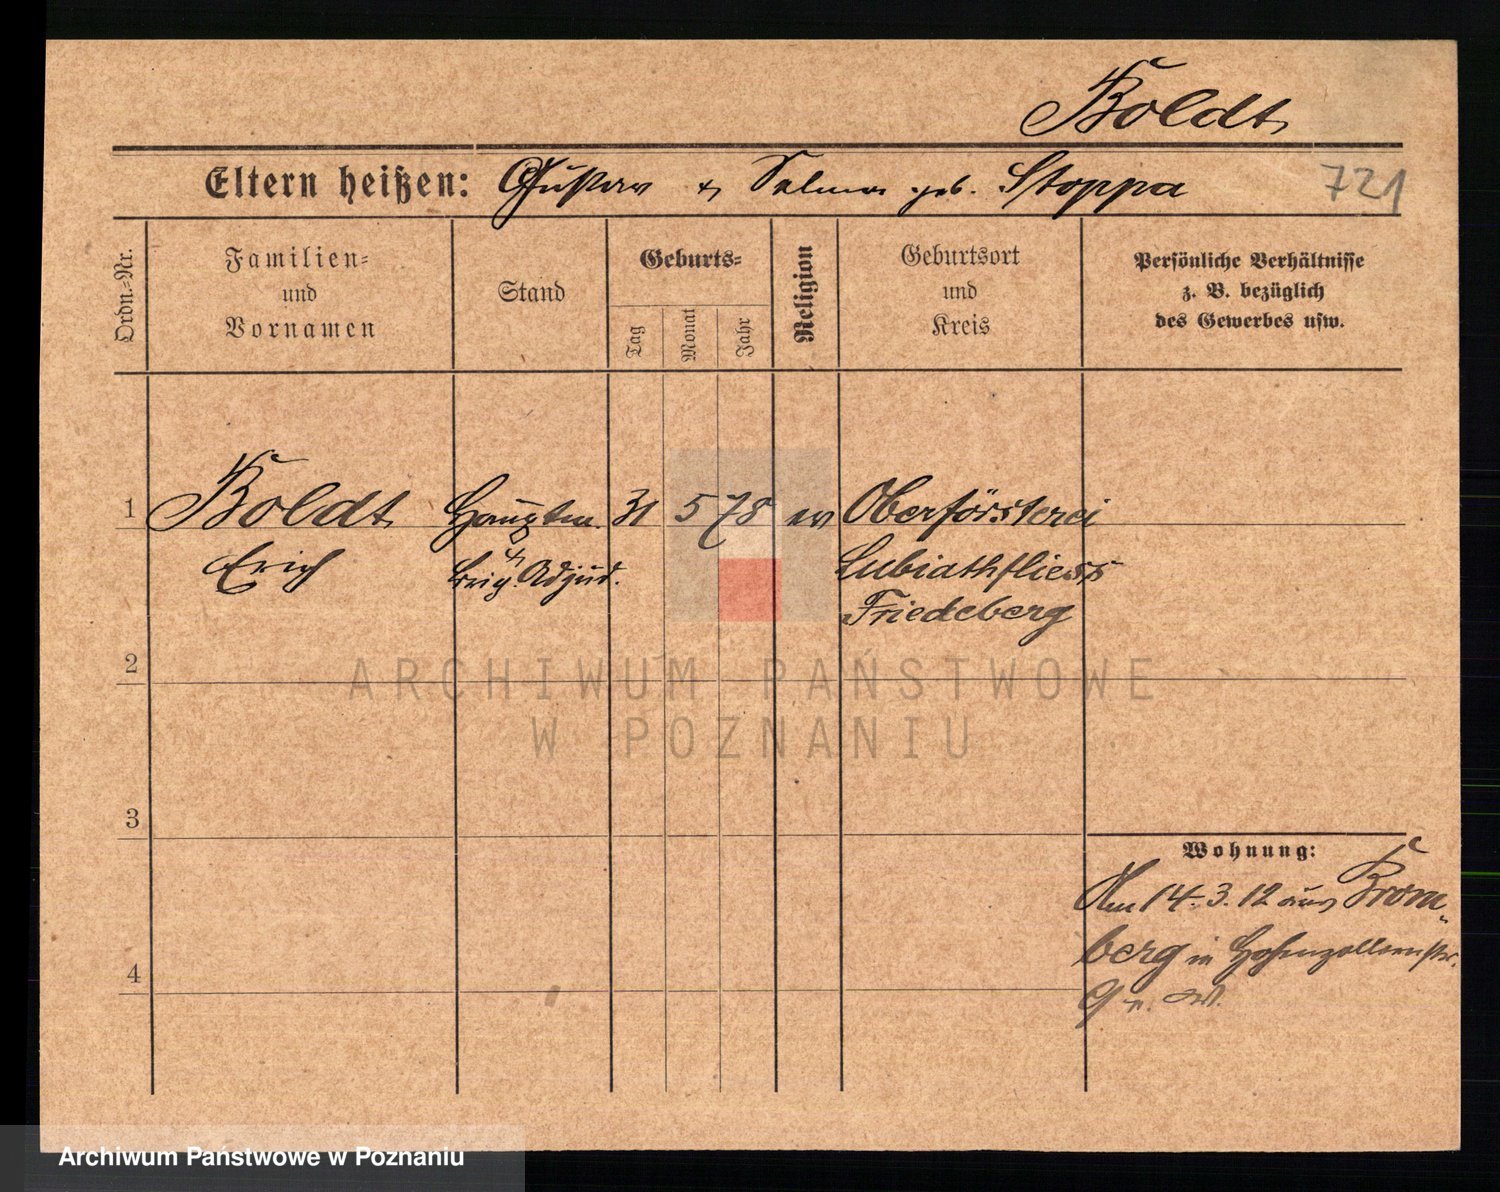 Boldt
Eltern heißen: Gustav & Selma geb. Stoppa
721
Ordn.-Nr.
Familien-
und
Vornamen
Stand
Geburts-
Tag
Monat
Jahr
Religion
Geburtsort
und
Kreis
Persönliche Verhältnisse
z. B. bezüglich
des Gewerbes usw.
1
Boldt Hauptm. 31 5 78 ev Oberförsterei
Erich & Brig. Adjud. Lubiathfliess
Friedeberg
2
ARCHIWUM PAŃSTWOWE
W POZNANIU
3
Wohnung:
Am 14.3.12 aus Brom-
berg in Hohenzollernstr.
4
9
Archiwum Państwowe w Poznaniu